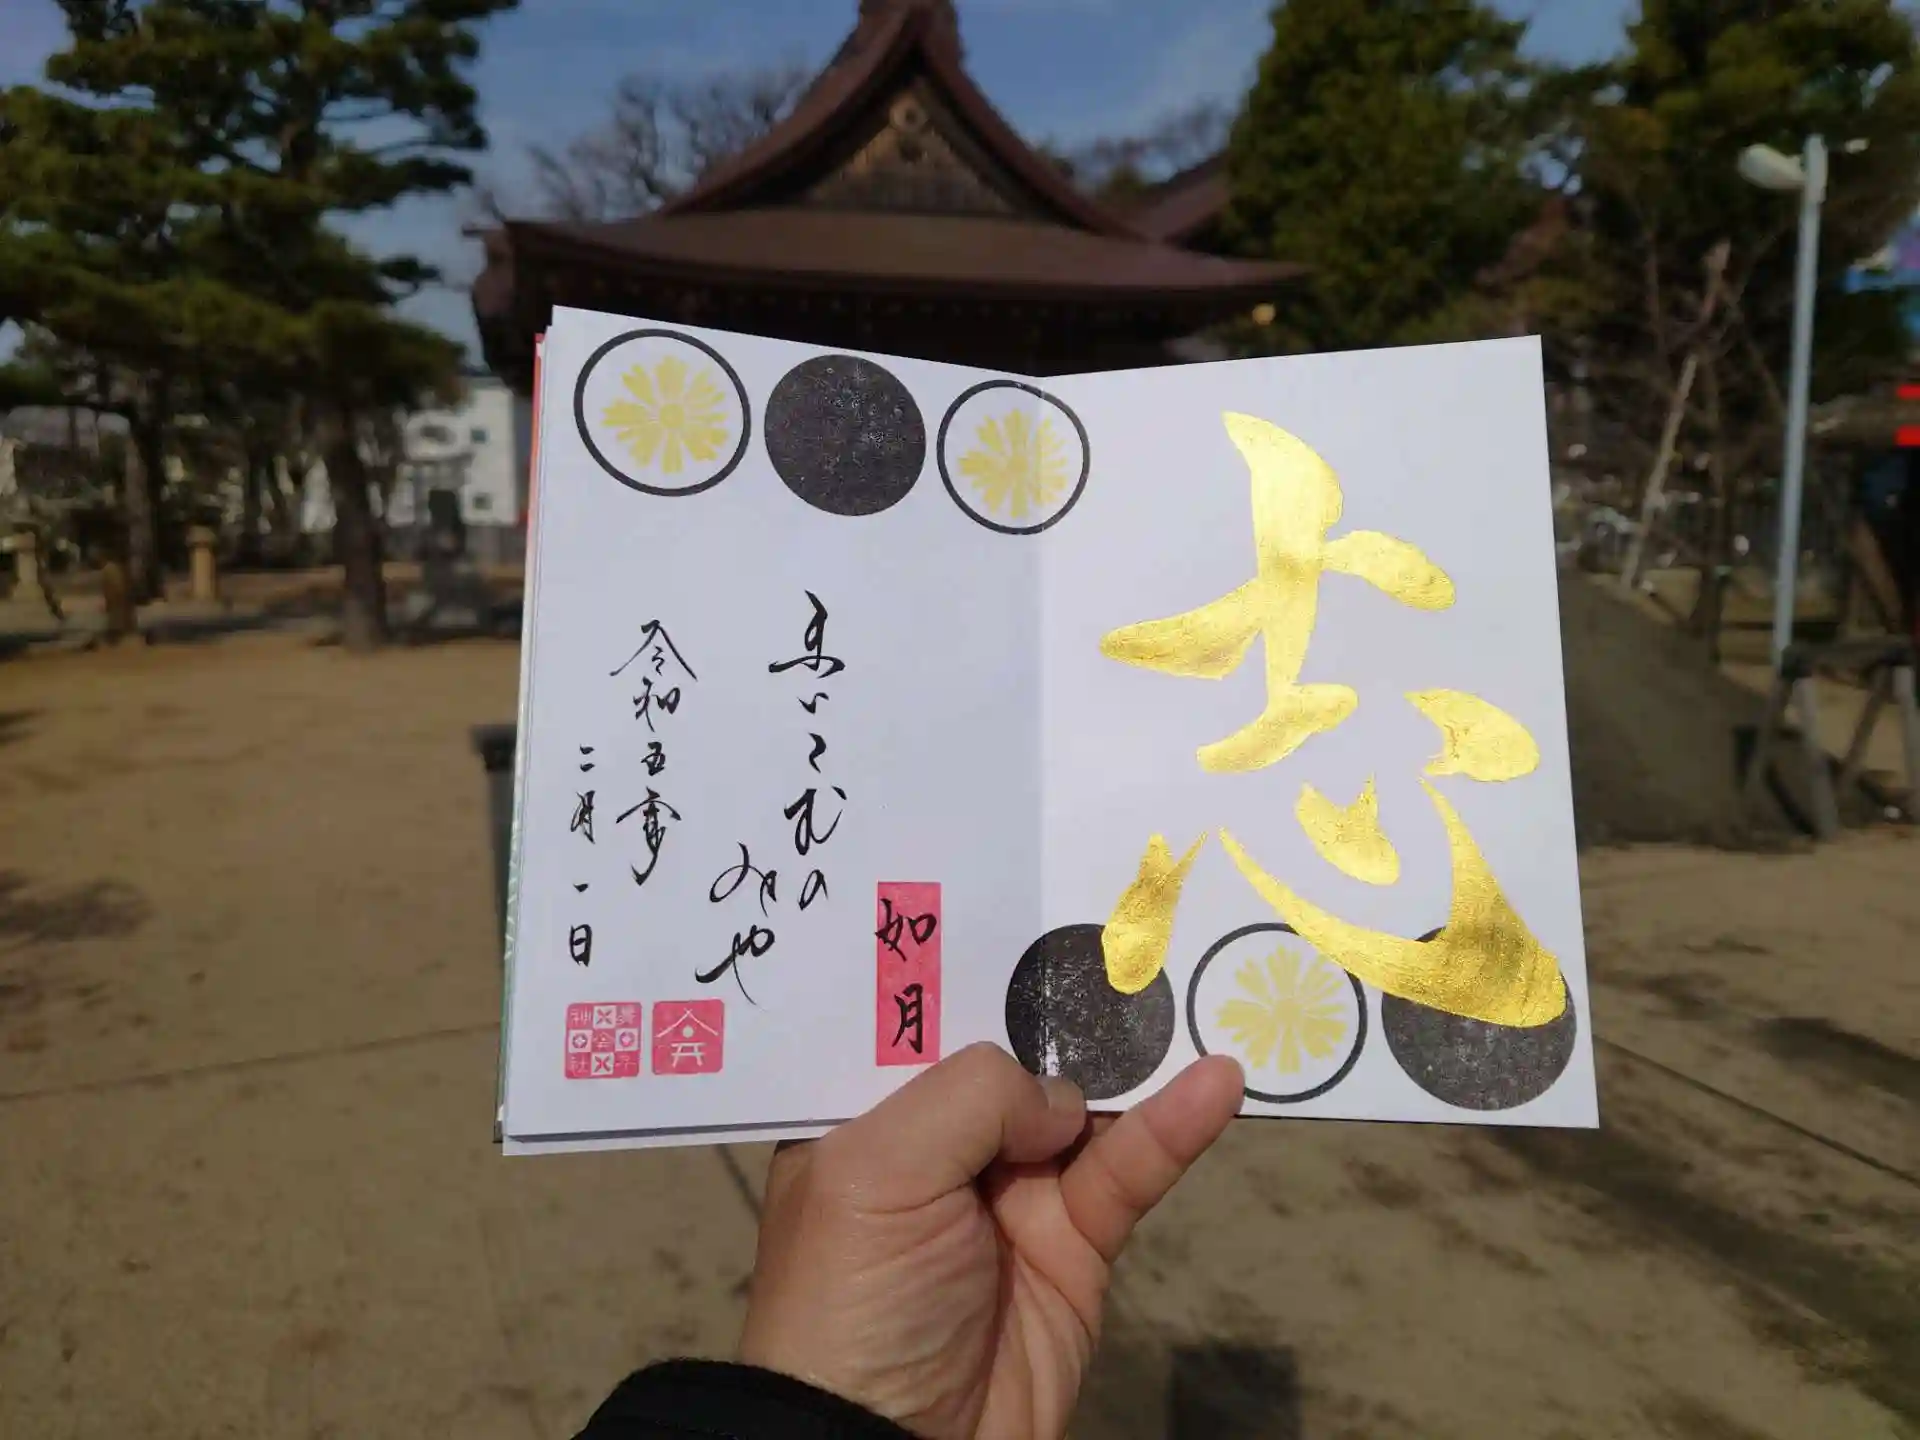 志
如月
まいこむの
みや
令和五年
二月一日